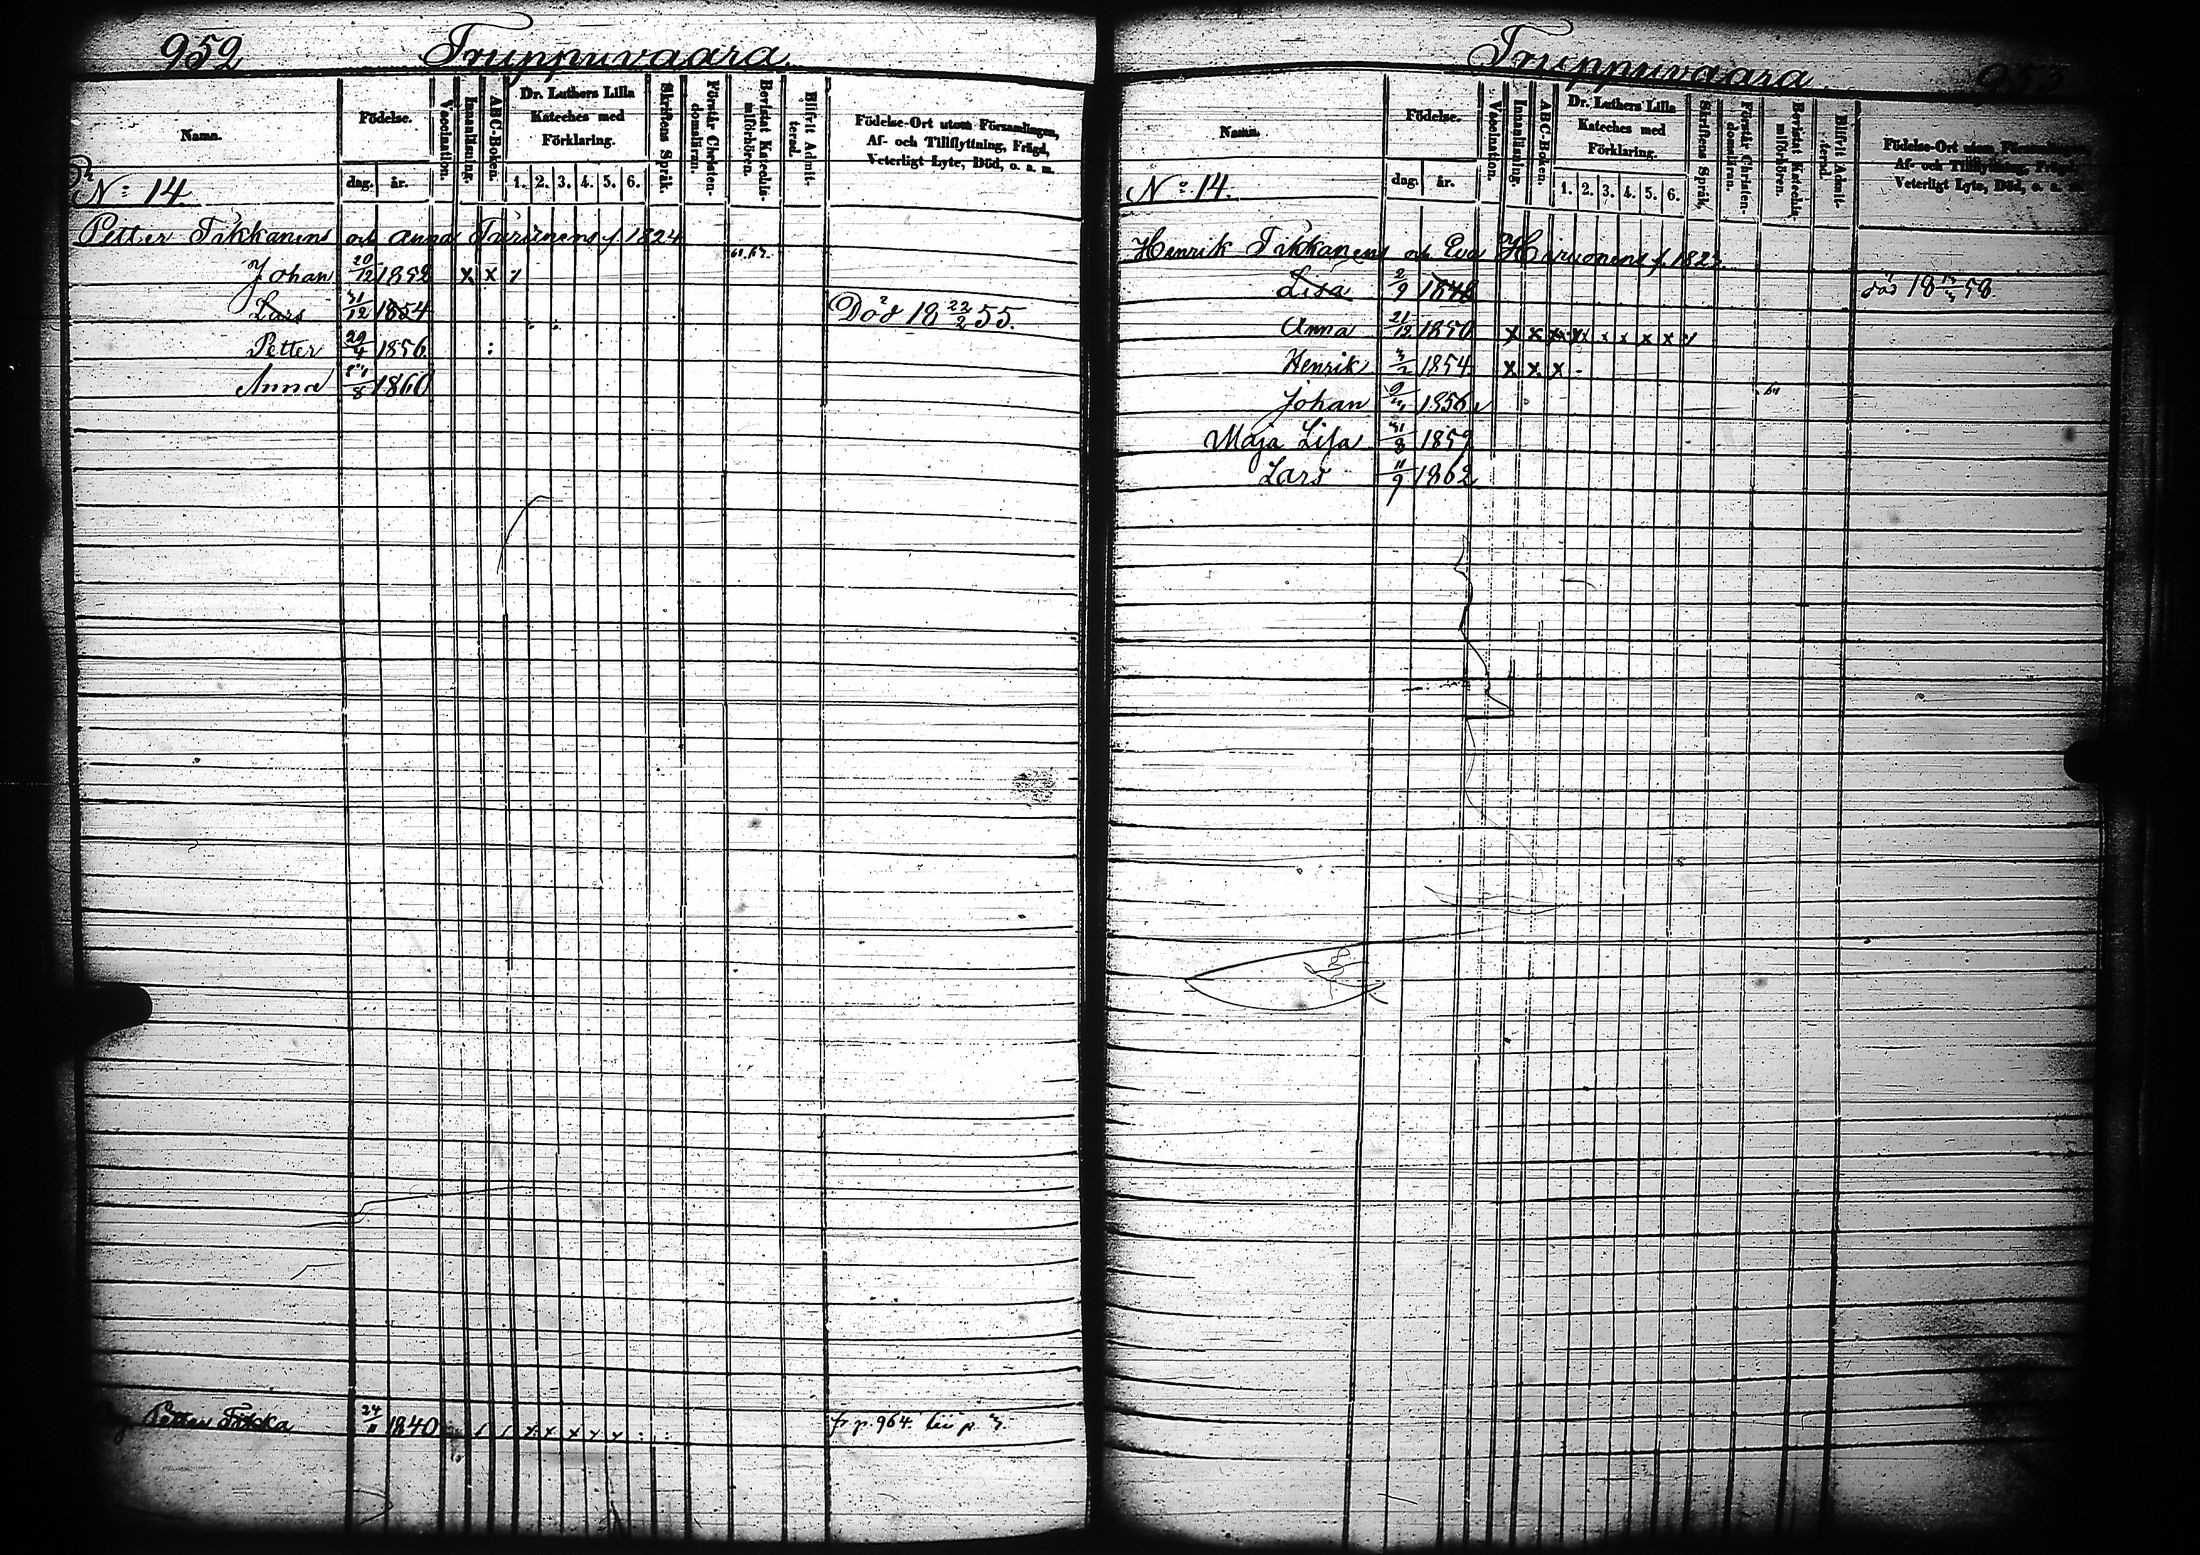 952
Truppuvaara.
Namn.
Födelse.
dag.
år.
Vaccination.
Innanläsning.
ABC-Boken.
Dr. Luthers Lilla
Kateches med
Förklaring.
1. 2. 3. 4. 5. 6.
Skriftens Språk.
Förstår Christen-
domsläran.
Bevistat Katechis-
miförhören.
Blifvit Admit-
terad.
Födelse-Ort utom Församlingen,
Af- och Tillflyttning, Frägd,
Veterligt Lyte, Död, o. s. m.
No: 14
Petter Takkanens och Anna f 1824
Johan 20/12 1852 x x
Lars 31/12 1854 Död 18 22/2 55.
Petter 29/4 1856 :
Anna /8 1860
Petter Takka 24/11 1840 fr p. 964. p. 3.
Truppuvaara.
952
Namn.
Födelse.
dag.
år.
Vaccination.
Innanläsning.
ABC-Boken.
Dr. Luthers Lilla
Kateches med
Förklaring.
1. 2. 3. 4. 5. 6.
Skriftens Språk.
Förstår Christen-
domsläran.
Bevistat Katechis-
miförhören.
Blifvit Admit-
terad.
Födelse-Ort utom Församlingen,
Af- och Tillflyttning, Frägd,
Veterligt Lyte, Död, o. s. m.
No: 14.
Henrik Takkanens och Eva Hirvonens f.
Lisa 2/9 1848 död 18 58
Anna 21/12 1850 x x x x x x x x
Henrik 1854 x x x
Johan 1856
Maja Lisa 31/8 1859
Lars 11/9 1862